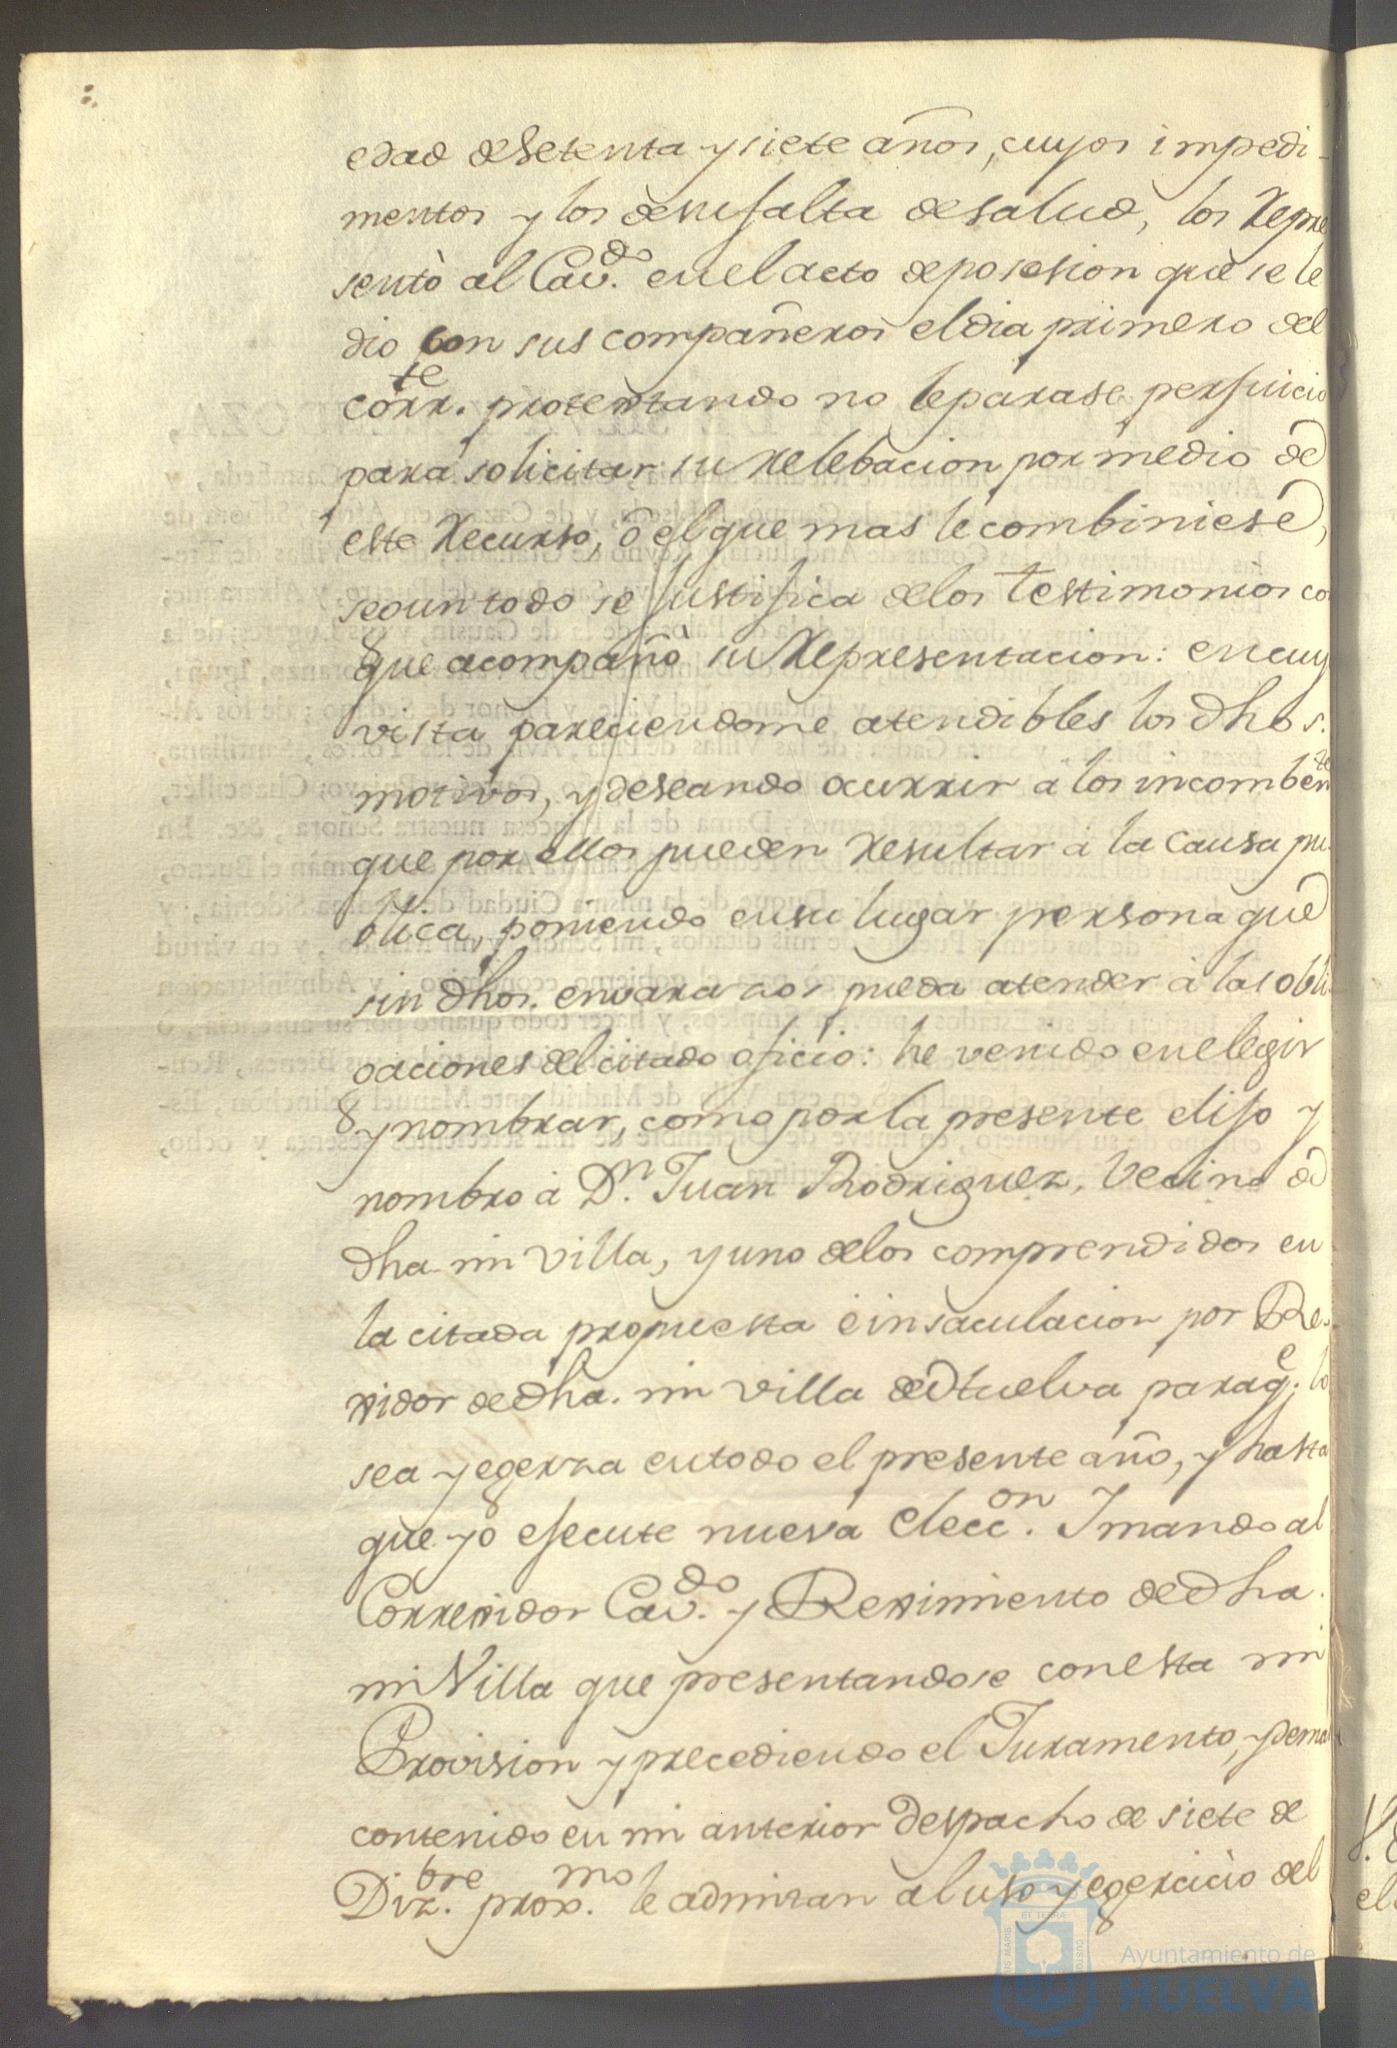 edad de setenta y siete años, cuyos impedi-
mentos y los de su falta de salud, los Repre
sentò al Cav.do en el acto de posesion que se le
dio con sus compañeros el dia primero del
corr.te protestando no le parase perjuicio
para solicitar su relebacion por medio de
este Recurso, ò el que mas le combiniese,
segun todo se justifica de los testimonios co
que acompañò su Representacion: en cuy
vista pareciendome atendibles los dhos.
motivos, y deseando ocurrir à los incombente
que por ellos pueden resultar à la causa pu
blica, poniendo en su lugar persona que
sin dhos. envarazos pueda atender à las obli
gaciones del citado oficio: he venido en elegir
y nombrar, como por la presente elijo y
nombro à D.n Juan Rodriguez, Vecino de
dha mi Villa, y uno de los comprendidos en
la citada propuesta è insaculacion por Re-
gidor de dha. mi villa de Huelva para q.e lo
sea y egerza en todo el presente año, y hasta
que yo ejecute nueva elecc.on Y mando al
Corregidor Cav.do y Regimiento de dha.
mi Villa que presentandose con esta mi
Provision y precediendo el Juramento, y dema
contenido en mi anterior Despacho de siete de
Diz.bre prox.mo le admitan al uso y egercicio del
ET TERRÆ
Ayuntamiento de
HUELVA